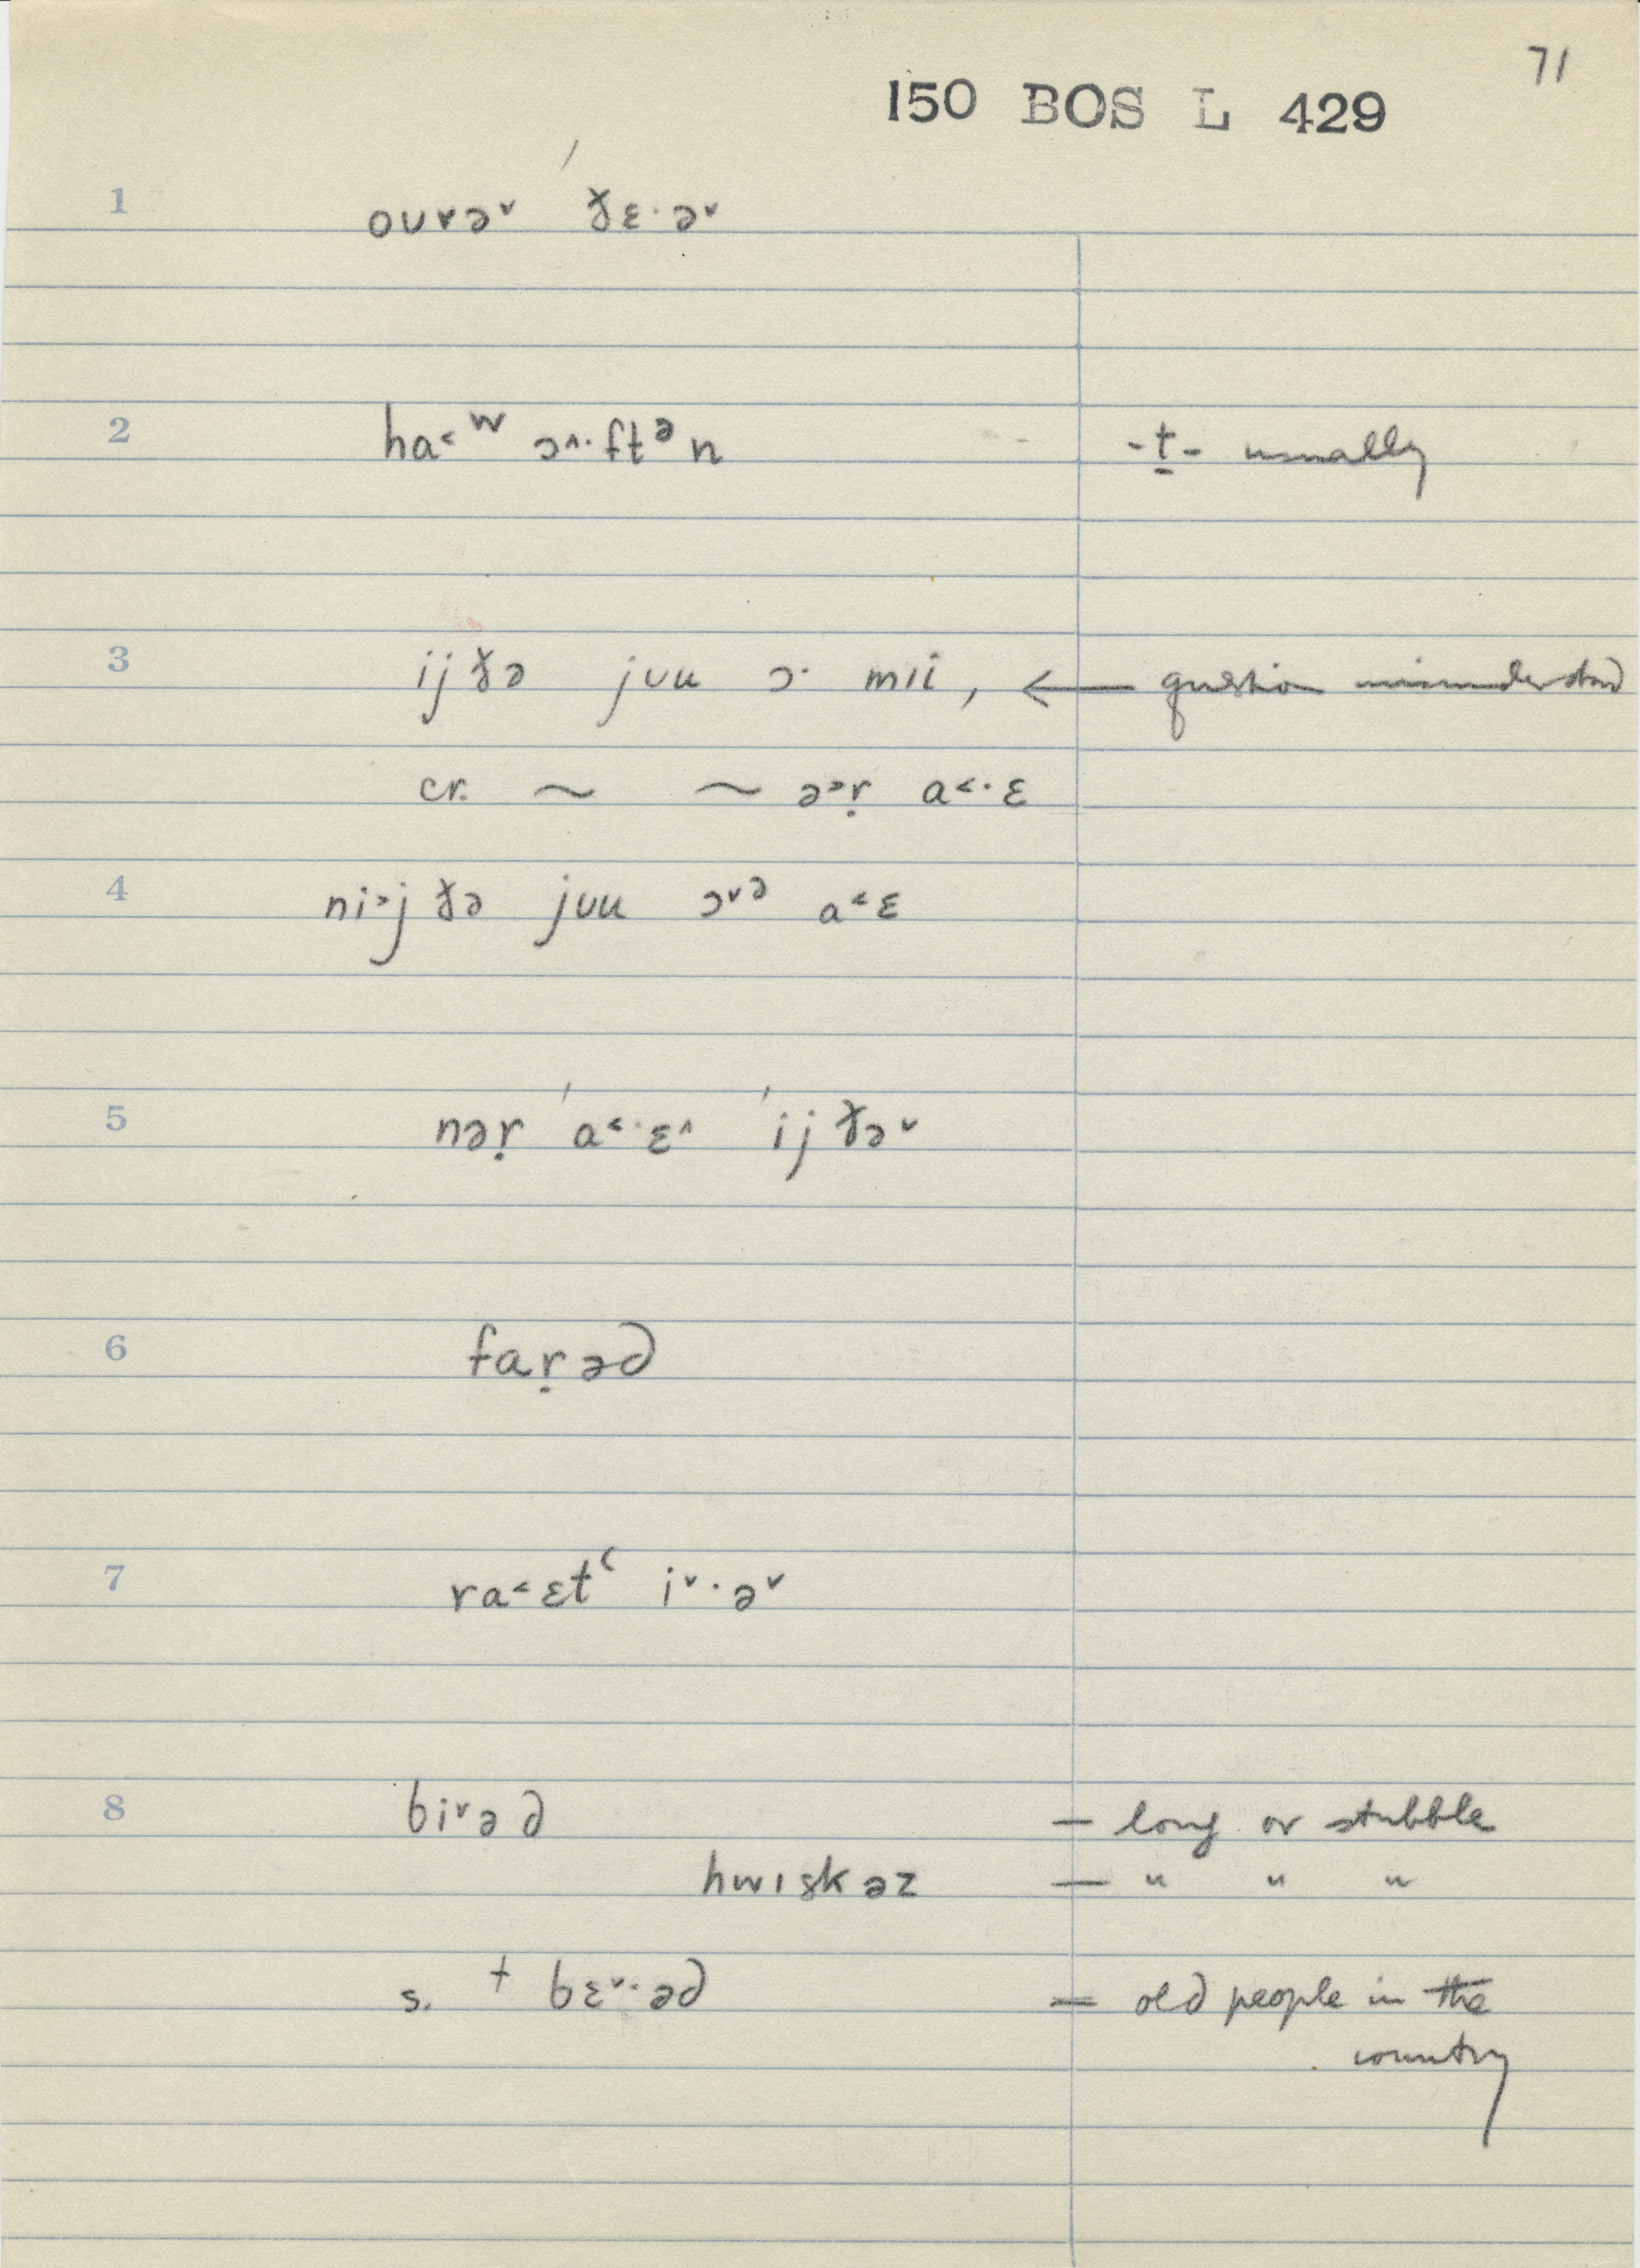 71
150 BOS L 429
1 oʊvə˅ ˈɣ̵ɛ·ə˅
2 ha˂ʷ ɔ˄·ftᵊn -t̠- usually
3 ijɣ̵ə jʊu ɔ· mɪi, ← question misunderstood
cr. ~ ~ ə˃ṛ a˂·ɛ
4 ni˃jɣ̵ə jʊu ɔ˅ᵊ a˂ɛ
5 nəṛ ˈa˂·ɛ˄ ˈijɣ̵ə˅
6 faṛəd
7 ra˂ɛtʻ i˅·ə˅
8 bi˅əd — long or stubble
hwɪskəz — " " "
s. † bɛ˅·əd = old people in the
country